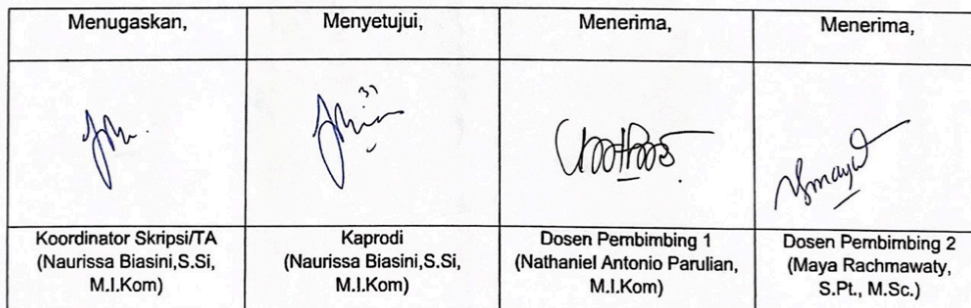 Menugaskan,
Menyetujui,
Menerima,
Menerima,
Koordinator Skripsi/TA
(Naurissa Biasini,S.Si,
M.I.Kom)
Kaprodi
(Naurissa Biasini,S.Si,
M.I.Kom)
Dosen Pembimbing 1
(Nathaniel Antonio Parulian,
M.I.Kom)
Dosen Pembimbing 2
(Maya Rachmawaty,
S.Pt., M.Sc.)